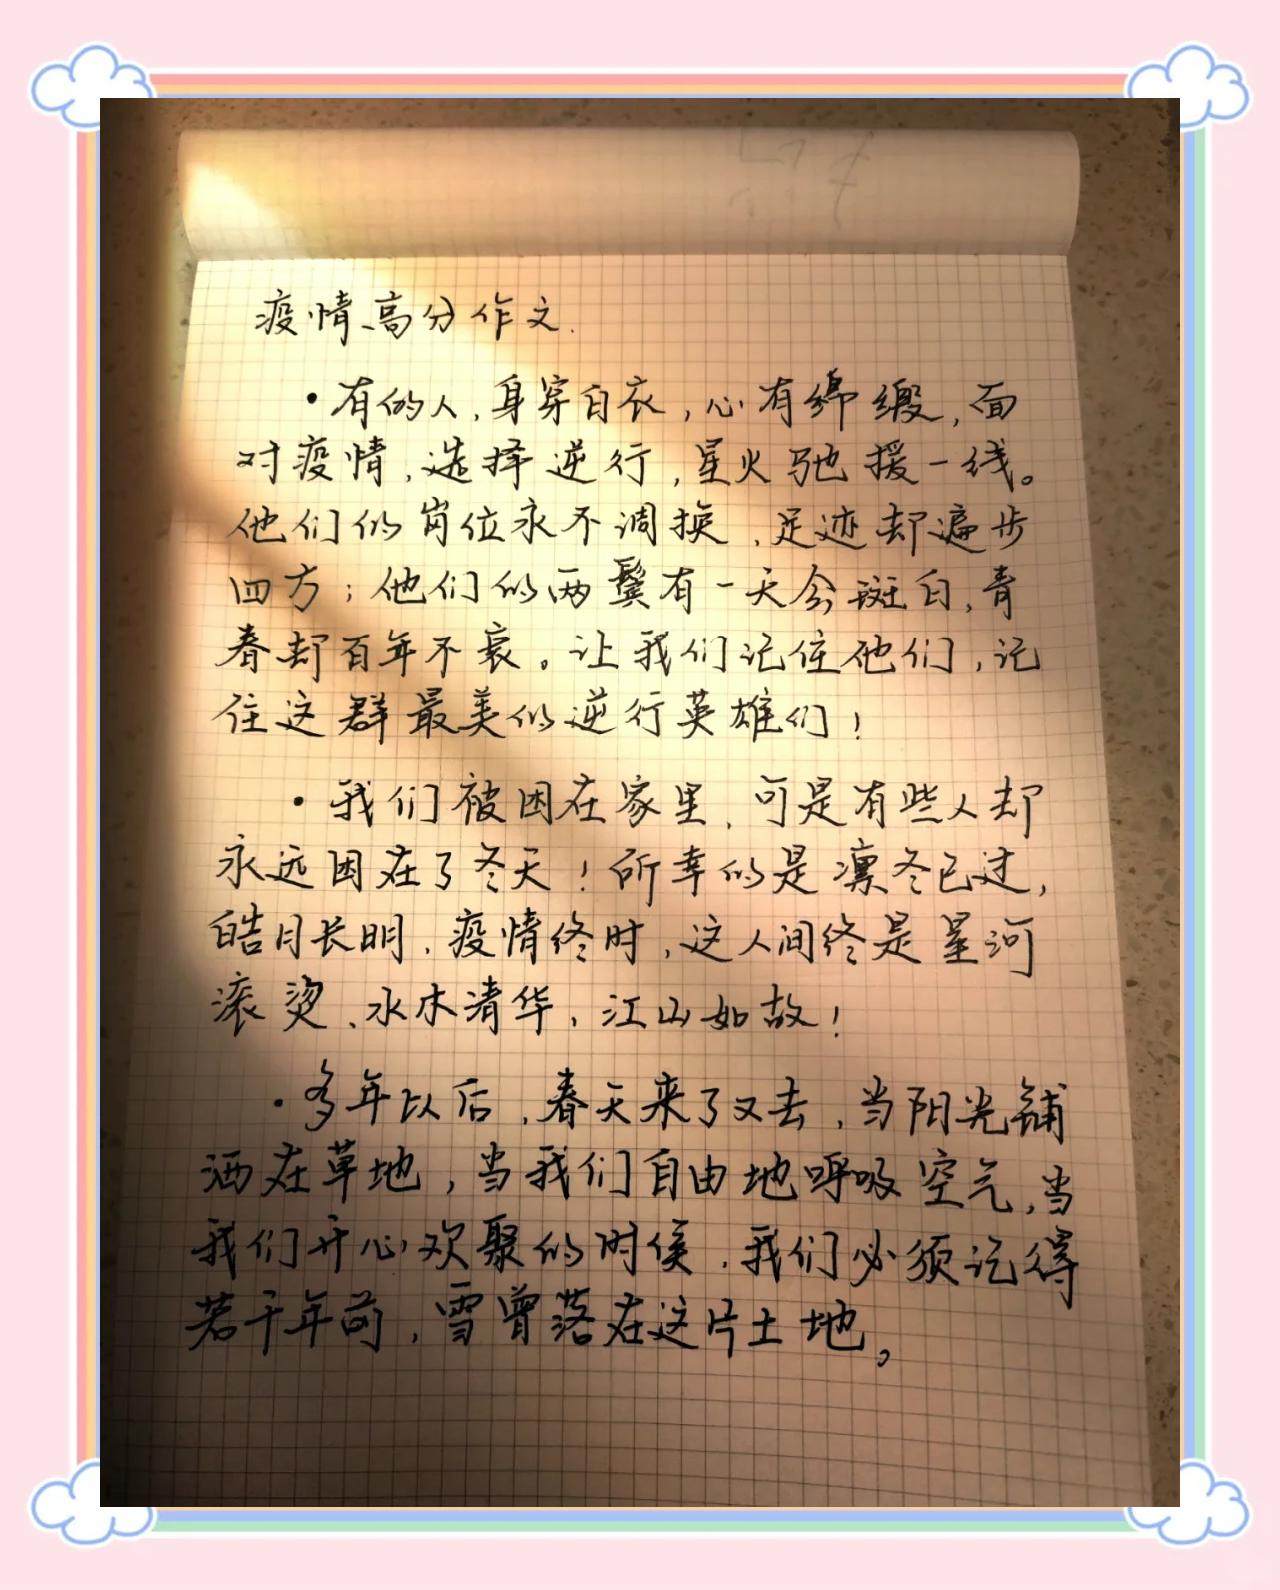 疫情高分作文.
·有的人,身穿白衣,心有绵缎,面
对疫情,选择逆行,星火驰援一线。
他们的岗位永不调换,足迹却遍步
四方;他们的两鬓有一天会斑白,青
春却百年不衰。让我们记住他们,记
住这群最美的逆行英雄们!
·我们被困在家里,可是有些人却
永远困在了冬天!所幸的是凛冬已过,
皓月长明,疫情终时,这人间终是星河
滚烫、水木清华,江山如故!
·多年以后,春天来了又去,当阳光铺
洒在草地,当我们自由地呼吸空气,当
我们开心欢聚的时候,我们必须记得
若干年前,雪曾落在这片土地。